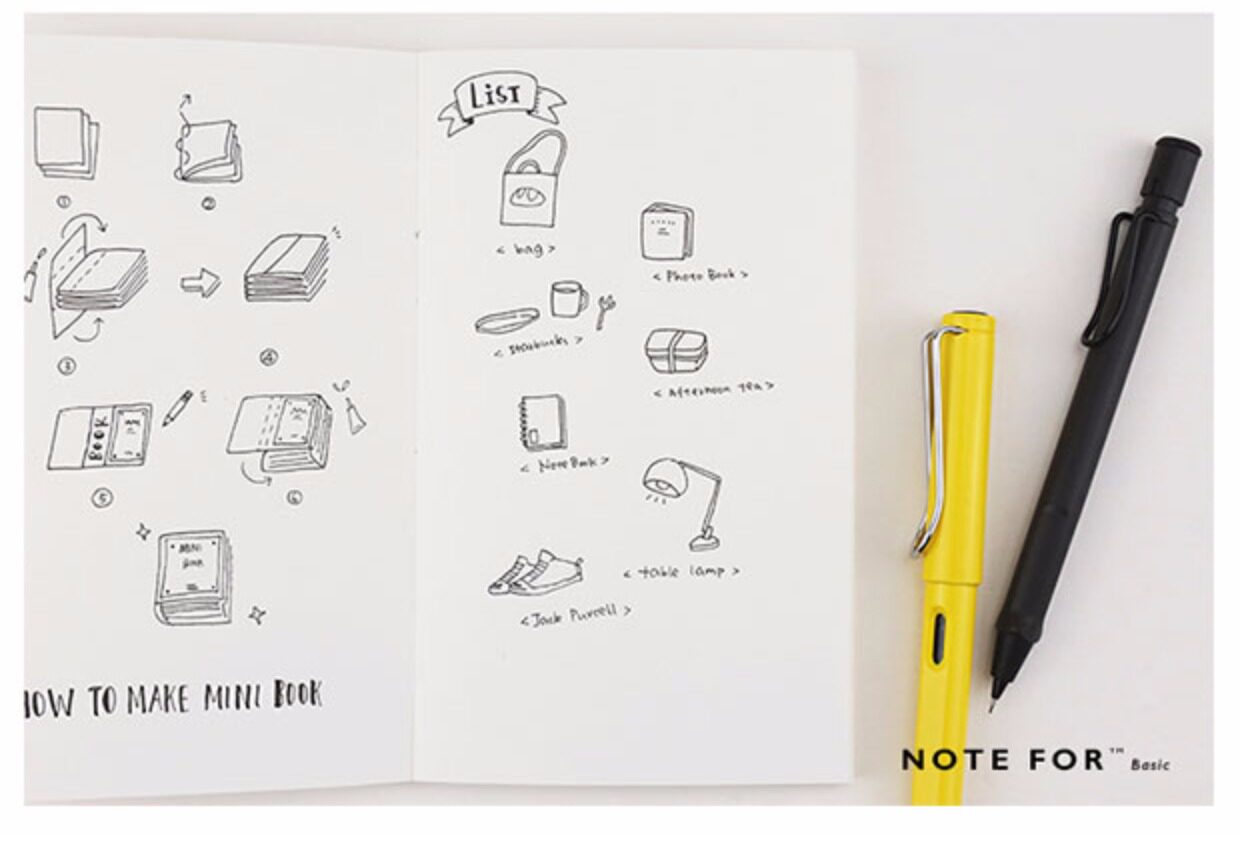 ①
②
③
④
BOOK
⑤
⑥
MINI
BOOK
HOW TO MAKE MINI BOOK
LIST
< bag >
< Photo Book >
< Starbucks >
< Afternoon Tea >
< NoteBook >
< table lamp >
< Jack Purcell >
NOTE FOR™ Basic